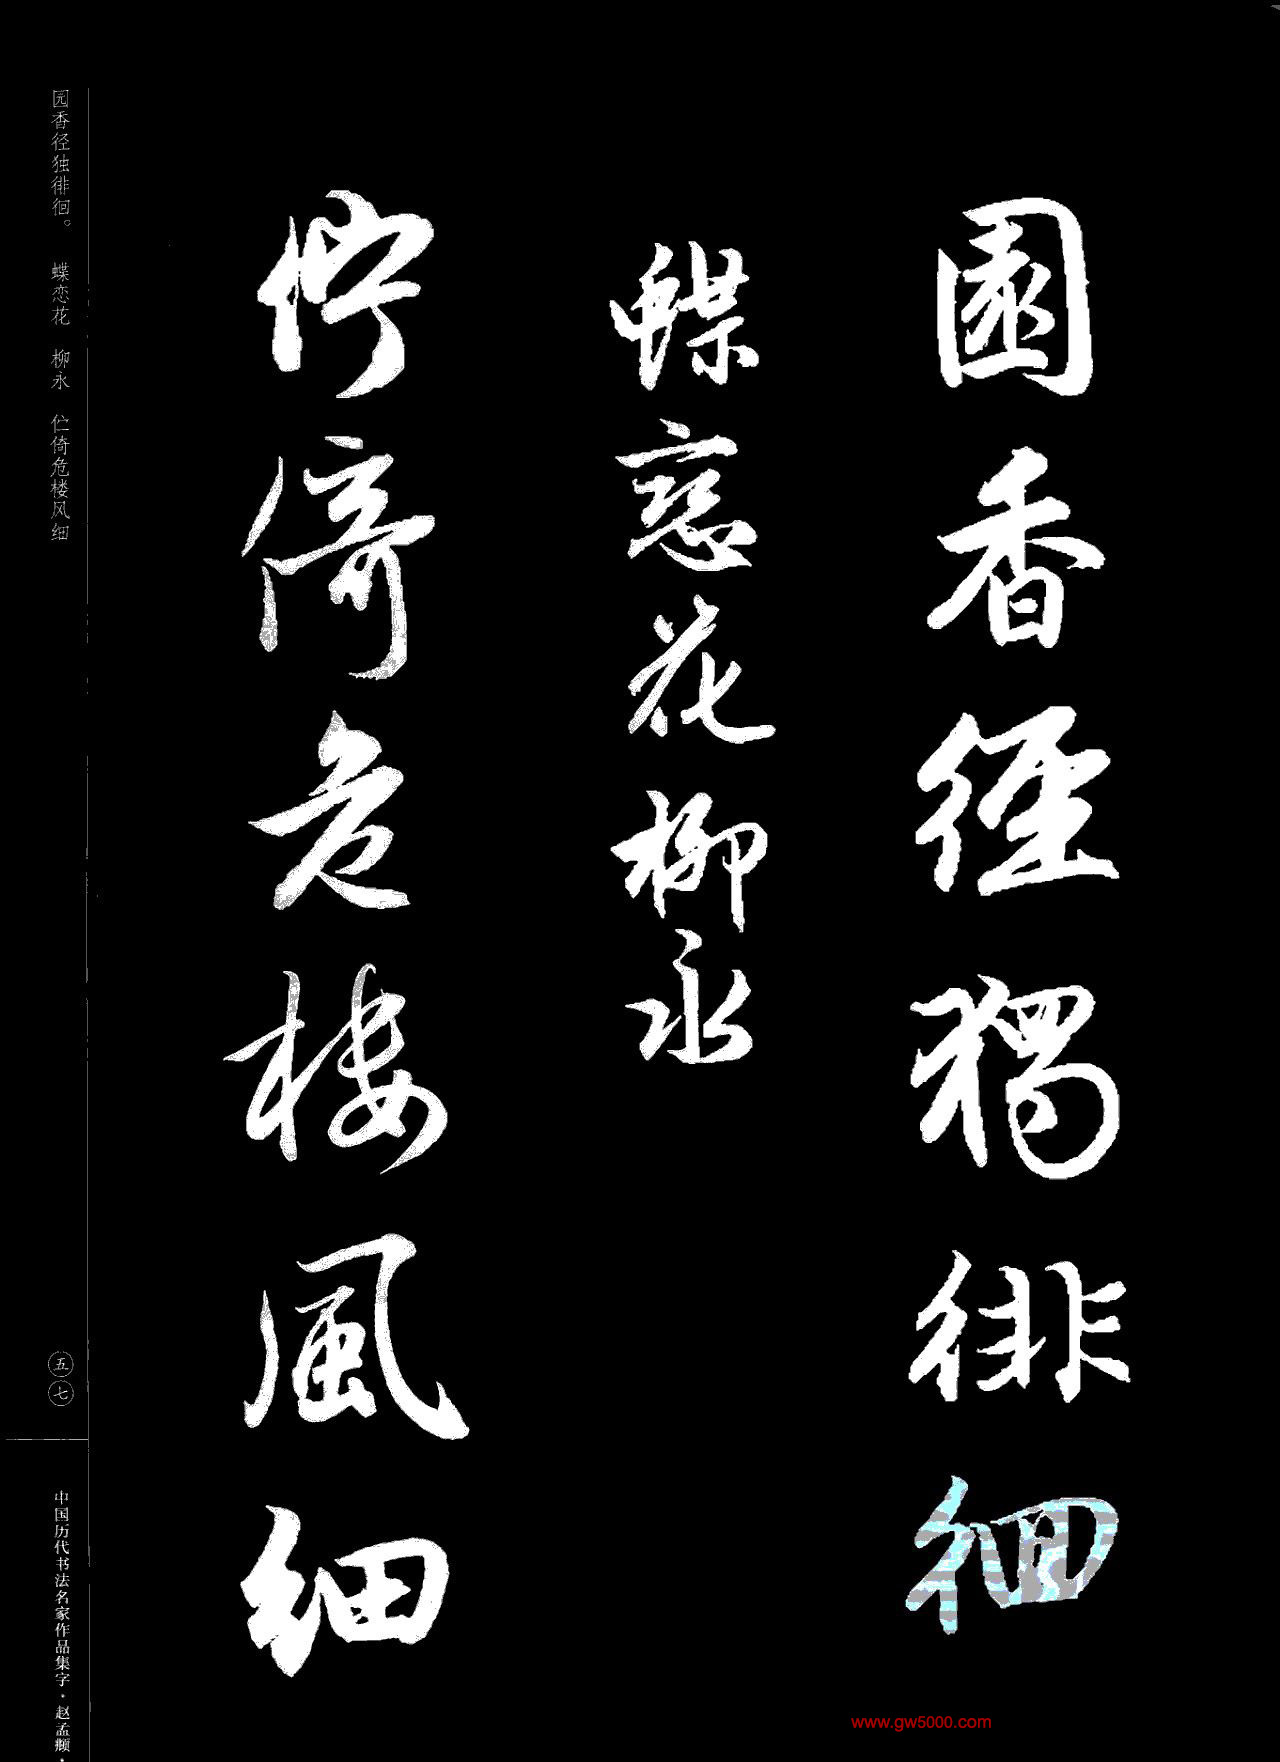 園香徑獨徘徊
蝶戀花 柳永
佇倚危樓風細
园香径独徘徊。 蝶恋花 柳永 伫倚危楼风细
五七
中国历代书法名家作品集字·赵孟頫·
www.gw5000.com